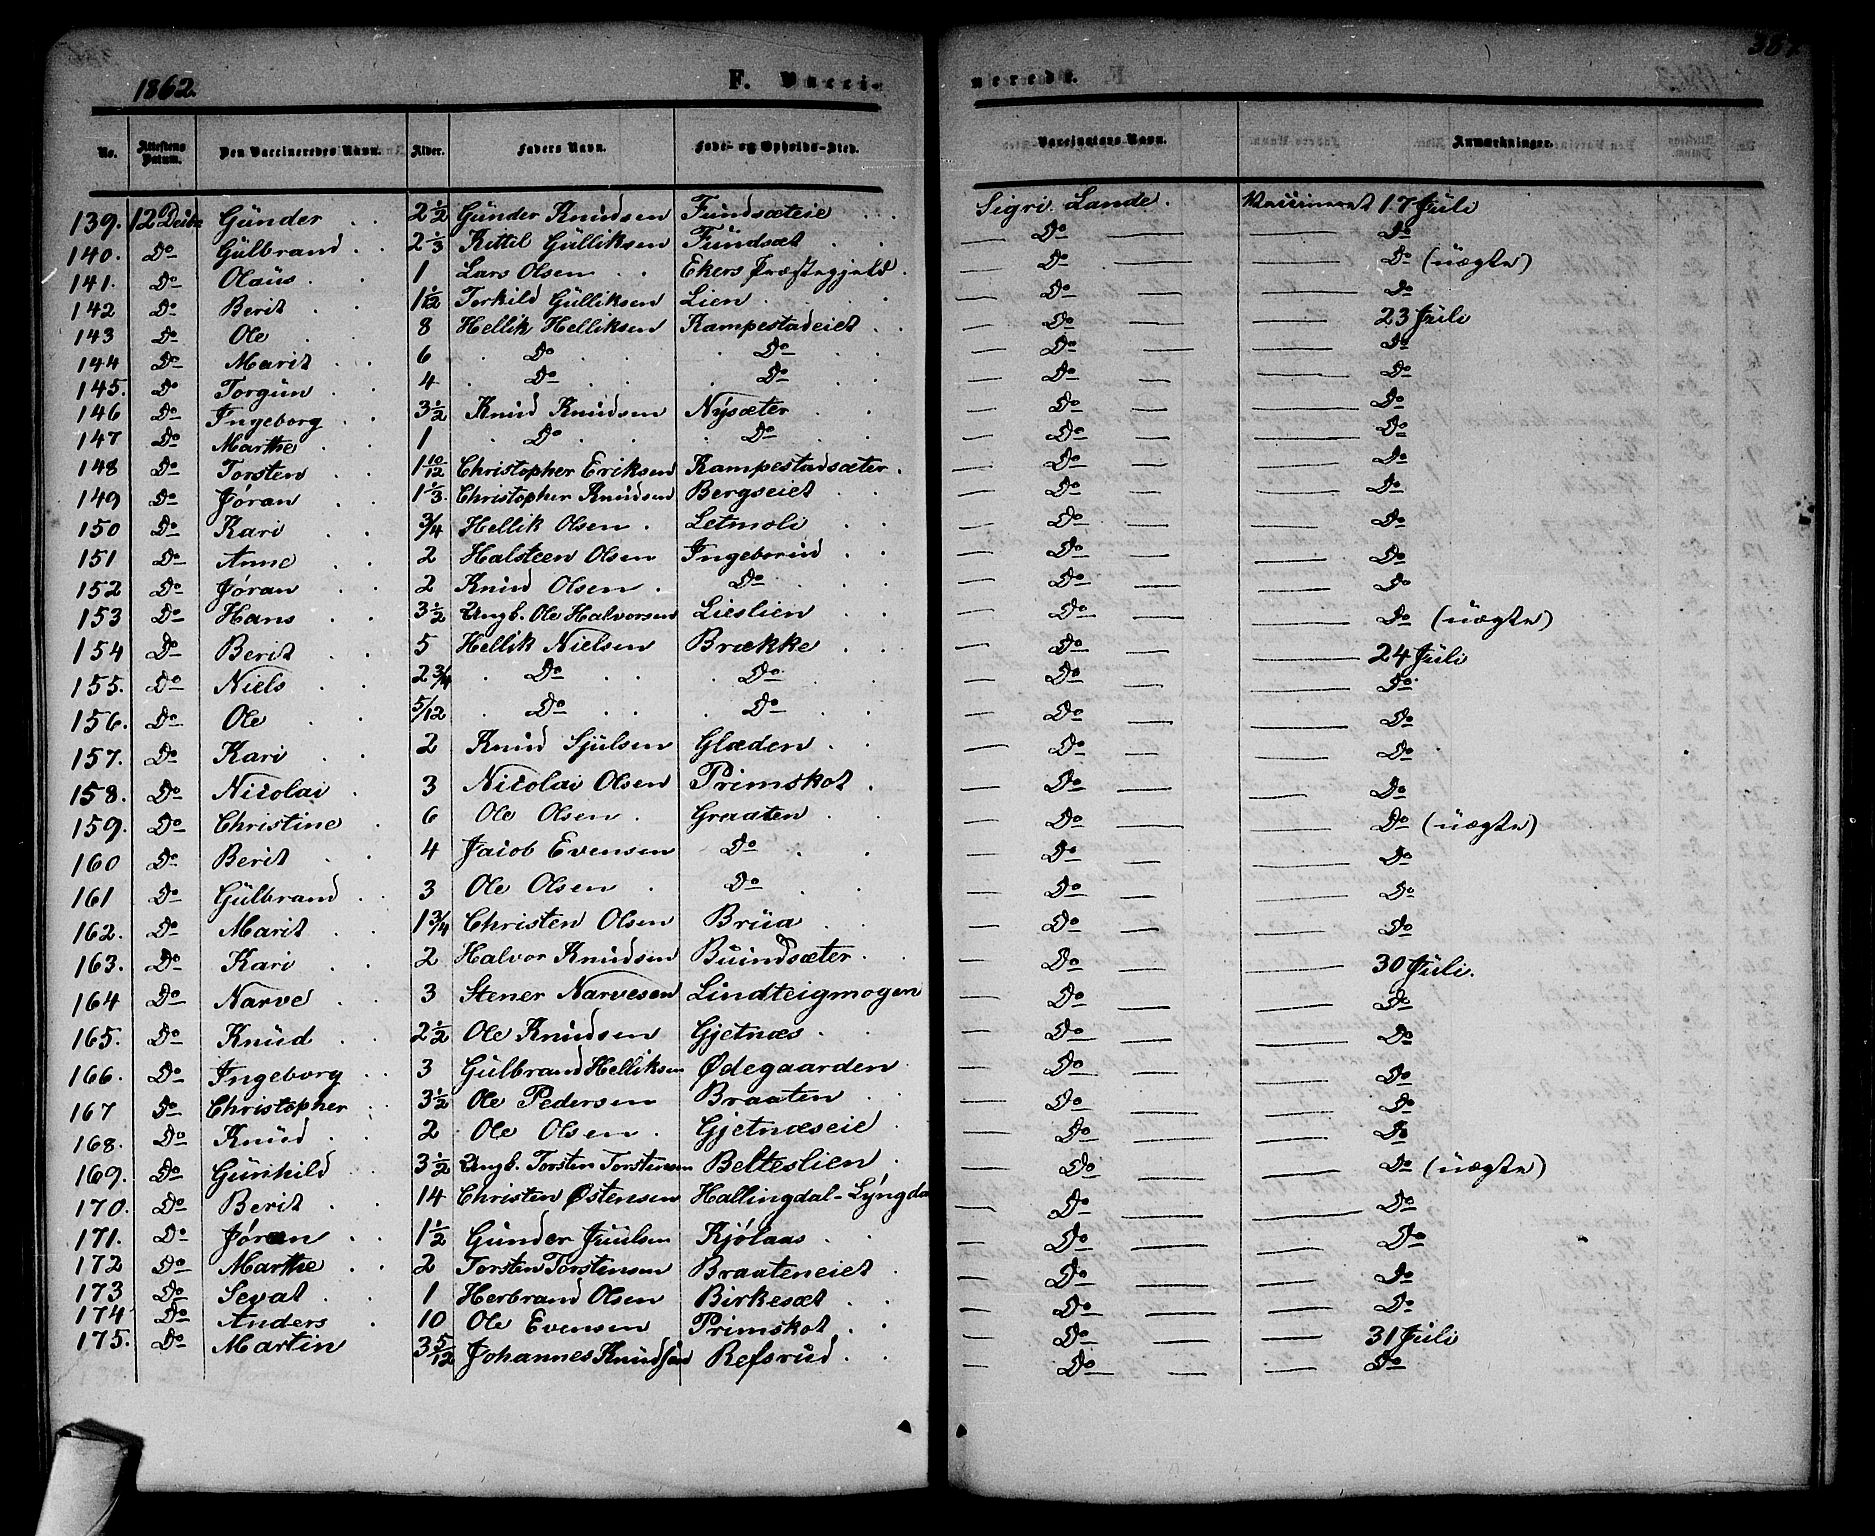 1862. F. Vacci- nerede. 387
No. | Attestens Datum. | Den Vaccineredes Navn. | Alder. | Faders Navn. | Føde- og Opholds-Sted. | Vaccinators Navn. | Anmærkninger.
139. 12 Decbr Günder 2 1/2 Günder Knudsen Fundsæteie Sigri Lande. Vaccineret 17 Juli
140. Do Gülbrand 2 1/3 Kittil Gülliksen Fündsæt Do Do
141. Do Olaüs 1 Lars Olsen Ekers Præstegjeld Do Do (uægte)
142 Do Berit 1 1/12 Torkild Gülliksen Lien Do Do
143 Do Ole 8 Hellik Helliksen Kampestadeiet Do 23 Juli
144 Do Marit 6 Do Do Do Do
145. Do Torgün 4 Do Do Do Do
146 Do Ingeborg 3 1/2 Knud Knudsen Nysæter Do Do
147 Do Marthe 1 Do Do Do Do
148 Do Torsten 1 10/12 Christopher Eriksen Kampestadsæter Do Do
149 Do Jøran 1 1/3 Christopher Knudsen Bergseiet Do Do
150 Do Kari 3/4 Hellik Olsen Letmoli Do Do
151 Do Anne 2 Halsteen Olsen Ingeborud Do Do
152 Do Jøran 2 Knud Olsen Do Do Do
153 Do Hans 3 1/2 Ungk. Ole Halvorsen Lieslien Do Do (uægte)
154 Do Berit 5 Hellik Nielsen Brække Do 24 Juli
155. Do Niels 2 3/4 Do Do Do Do
156. Do Ole 5/12 Do Do Do Do
157. Do Kari 2 Knud Sjulsen Glæden Do Do
158. Do Nicolai 3 Nicolai Olsen Primskot Do Do
159. Do Christine 6 Ole Olsen Graaten Do Do (uægte)
160 Do Berit 4 Jacob Evensen Do Do Do
161 Do Gülbrand 3 Ole Olsen Do Do Do
162. Do Marit 1 3/4 Christen Olsen Brüa Do Do
163. Do Kari 2 Halvor Knudsen Buindsæter Do 30 Juli.
164 Do Narve 3 Stener Narvesen Lindteigmogen Do Do
165. Do Knüd 2 1/2 Ole Knudsen Gjetnæs Do Do
166. Do Ingeborg 3 Gülbrand Helliksen Ødegaarden Do Do
167 Do Christopher 3 1/2 Ole Pedersen Braaten Do Do
168. Do Knüd 2 Ole Olsen Gjetnæseie Do Do
169. Do Günhild 3 1/2 Ungk. Torsten Torstensen Belteslien Do Do (uægte)
170. Do Berit 14 Christen Østensen Hallingdal-Lyngda Do Do
171. Do Jøran 1 1/2 Günder Juulsen Kjølaas Do Do
172 Do Marthe 2 Torsten Torstensen Braateneiet Do Do
173 Do Sevat 1 Herbrand Olsen Birkesæt Do Do
174 Do Anders 10 Ole Evensen Primskot Do 31 Juli
175. Do Martin 3 5/12 Johannes Knudsen Refsrud Do Do